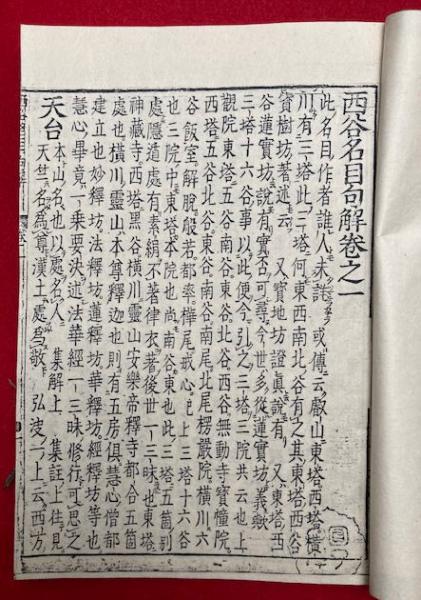 西谷名目句解卷之一
此名目作者誰人未詳 或傳云叡山東塔西塔橫
川有三塔此三塔何東西南北谷有之其東塔西谷
寶樹坊著述云云 又寶地坊證眞說有 又東塔西
谷蓮實坊說有實否可尋今世多從蓮實坊義歟
三塔十六谷事以此便今引之三塔三院共云也上
觀院東塔五谷南谷東谷北谷西谷無動寺寶幢院
西塔五谷北谷東谷南谷南尾北尾楞嚴院橫川六
谷飯室解脫般若都率樺尾戒心已上三塔十六谷
也三院中東塔本院也尚南谷東也此三塔五箇別
處隱遁處有素絹不著律衣著後世一三昧也東塔
神藏寺西塔黑谷橫川靈山安樂帝釋寺都合五箇
處也橫川靈山本尊釋迦也則有五房俱慧心僧都
建立也妙釋坊法釋坊蓮釋坊華釋坊經釋坊等也
慧心畢竟一乗要決述法華經一三昧修行可思之
天台 本山名也以處名人 集解上 集註上往見
天竺名爲尊漢土處爲敬 弘決一上云西方